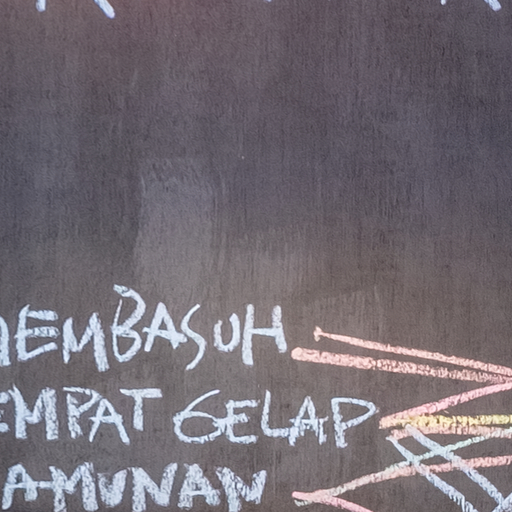 MEMBASUH
EMPAT GELAP
AMUNAN